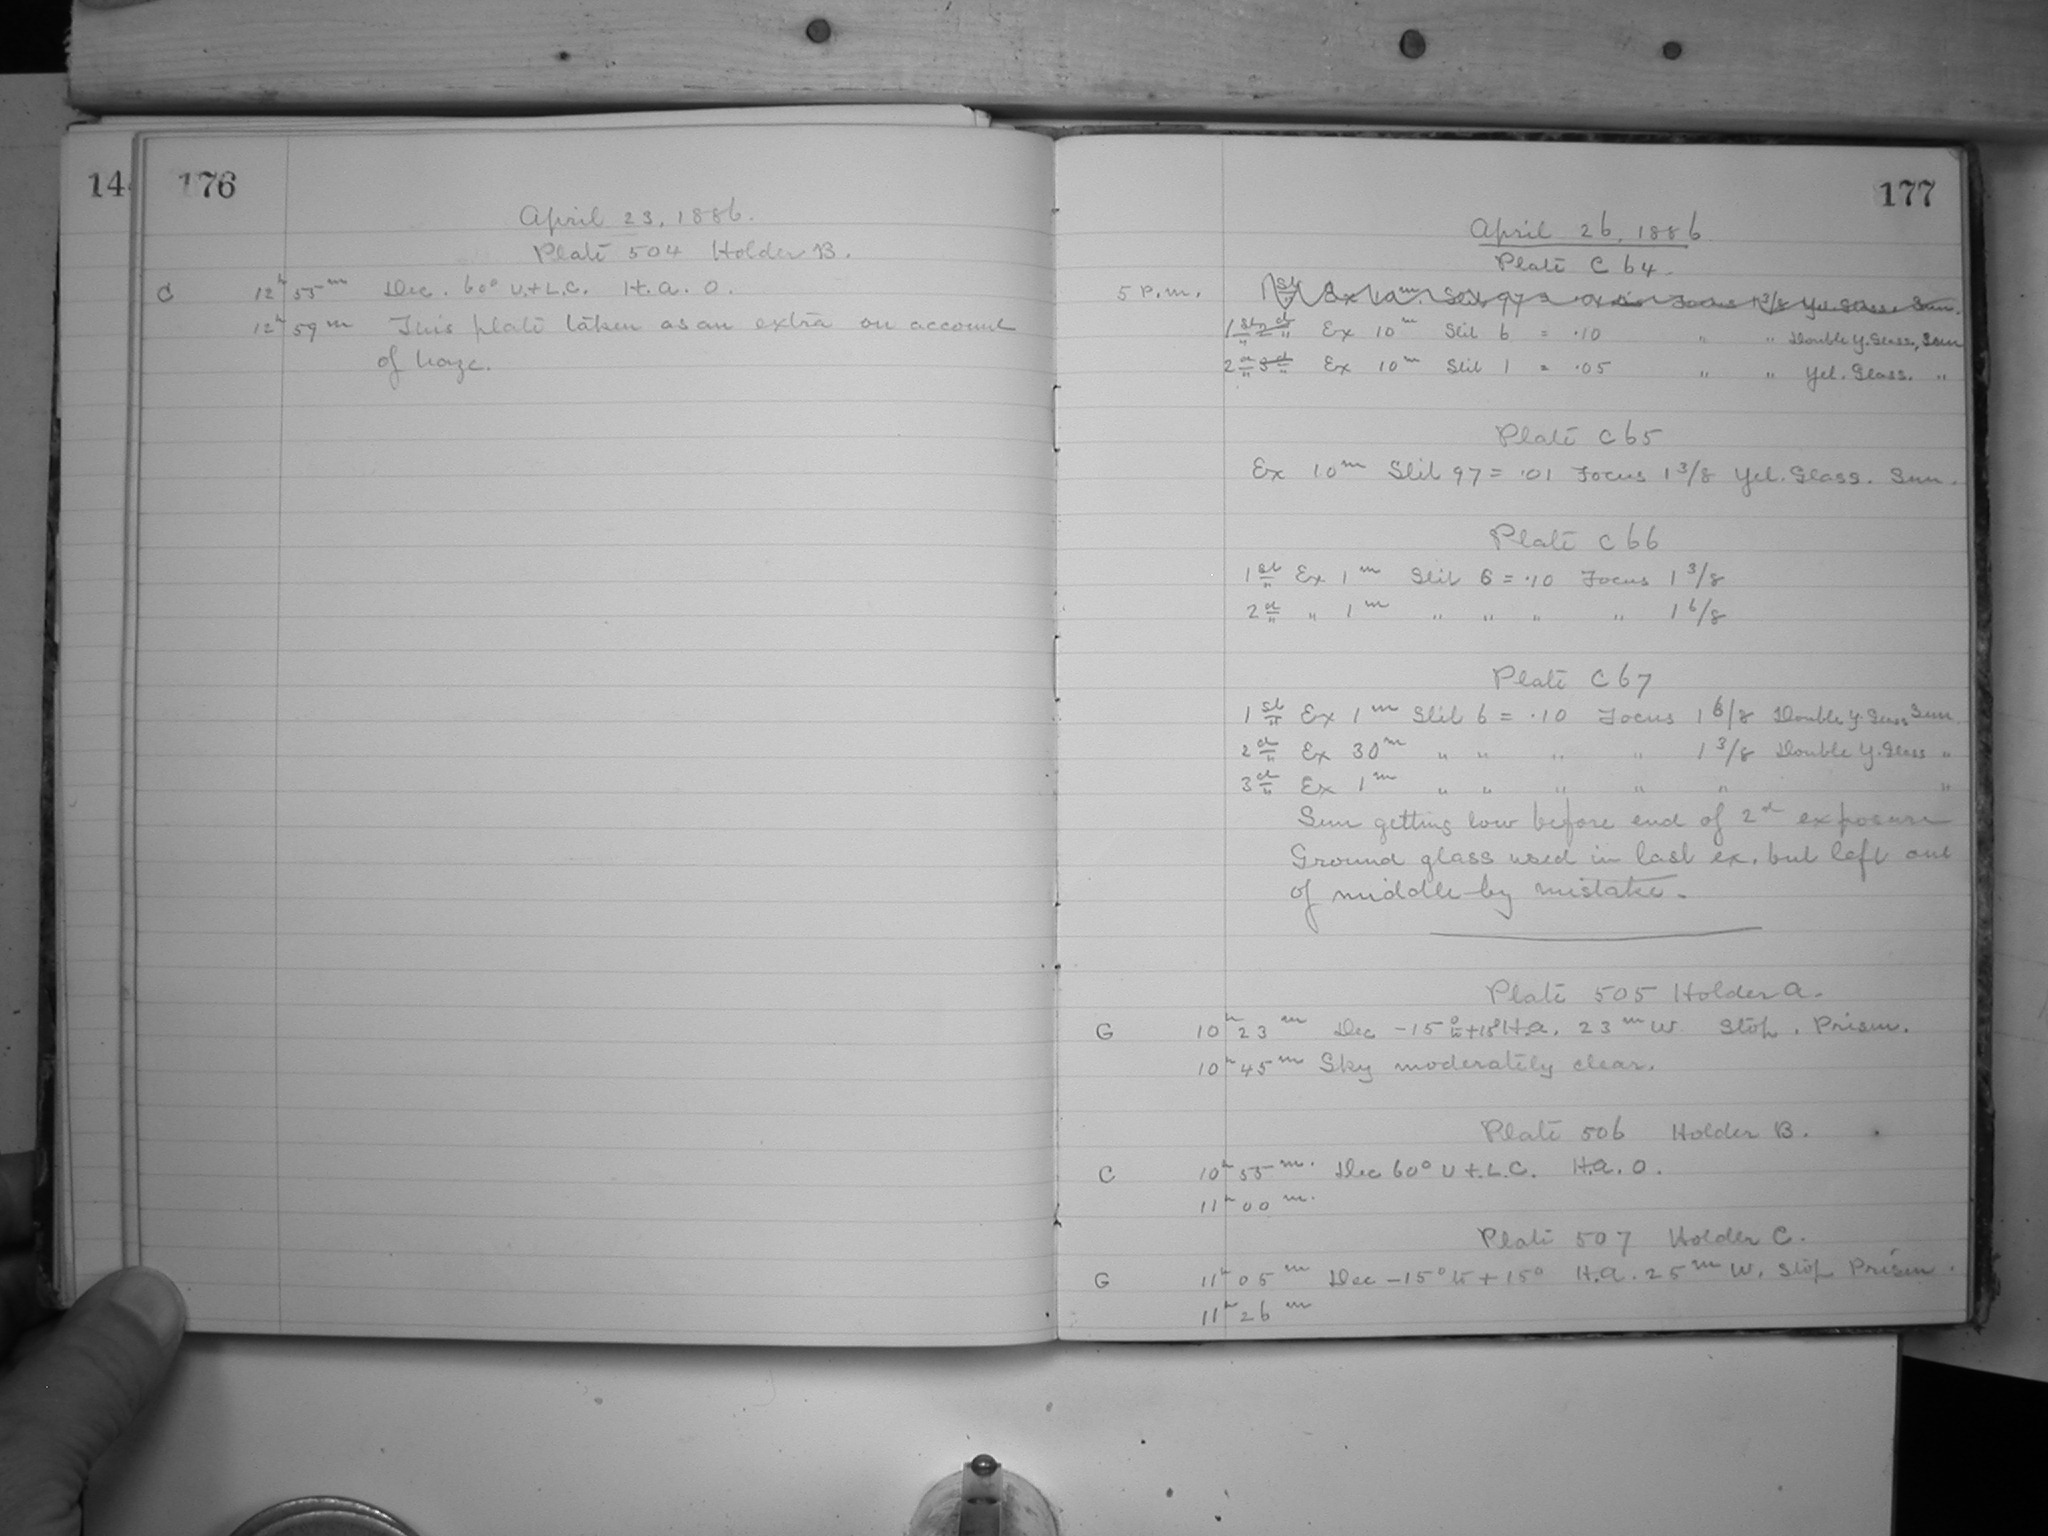 14
176
April 23, 1886.
Plate 504 Holder B.
C 12h 55m Dec. 60° U.+L.C. H.A. 0.
12h 59m This plate taken as an extra on account
of haze.
177
April 26, 1886
Plate C 64.
5 P.m. 1st Ex 10m Slit 97 = .01 Focus 1 3/8 Yel. Glass. Sun.
1st 2d Ex 10m Slit 6 = .10 " " Double Y. Glass, Sun
2d 3d Ex 10m Slit 1 = .05 " " Yel. Glass. "
Plate C 65
Ex 10m Slit 97 = .01 Focus 1 3/8 Yel. Glass. Sun.
Plate C 66
1st Ex 1m Slit 6 = .10 Focus 1 3/8
2d " 1m " " " " 1 6/8
Plate C 67
1st Ex 1m Slit 6 = .10 Focus 1 6/8 Double Y. Glass Sun.
2d Ex 30m " " " " 1 3/8 Double Y. Glass "
3d Ex 1m " " " " " "
Sun getting low before end of 2d exposure
Ground glass used in last ex. but left out
of middle by mistake.
Plate 505 Holder A.
G 10h 23m Dec -15° to +15° H.A. 23m W Stop. Prism.
10h 45m Sky moderately clear.
Plate 506 Holder B.
C 10h 55m. Dec 60° U+.L.C. H.A. 0.
11h 00m.
Plate 507 Holder C.
G 11h 05m Dec -15° to +15° H.A. 25m W. Stop Prism.
11h 26m